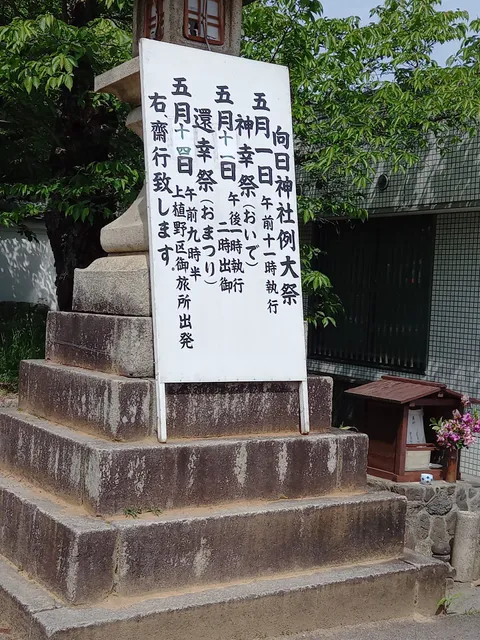 向日神社例大祭
五月一日 午前十一時執行
神幸祭(おいで)
五月十一日 午後一時執行
二時出御
還幸祭(おまつり)
五月十四日 午前九時半
上植野区御旅所出発
右、齋行致します。